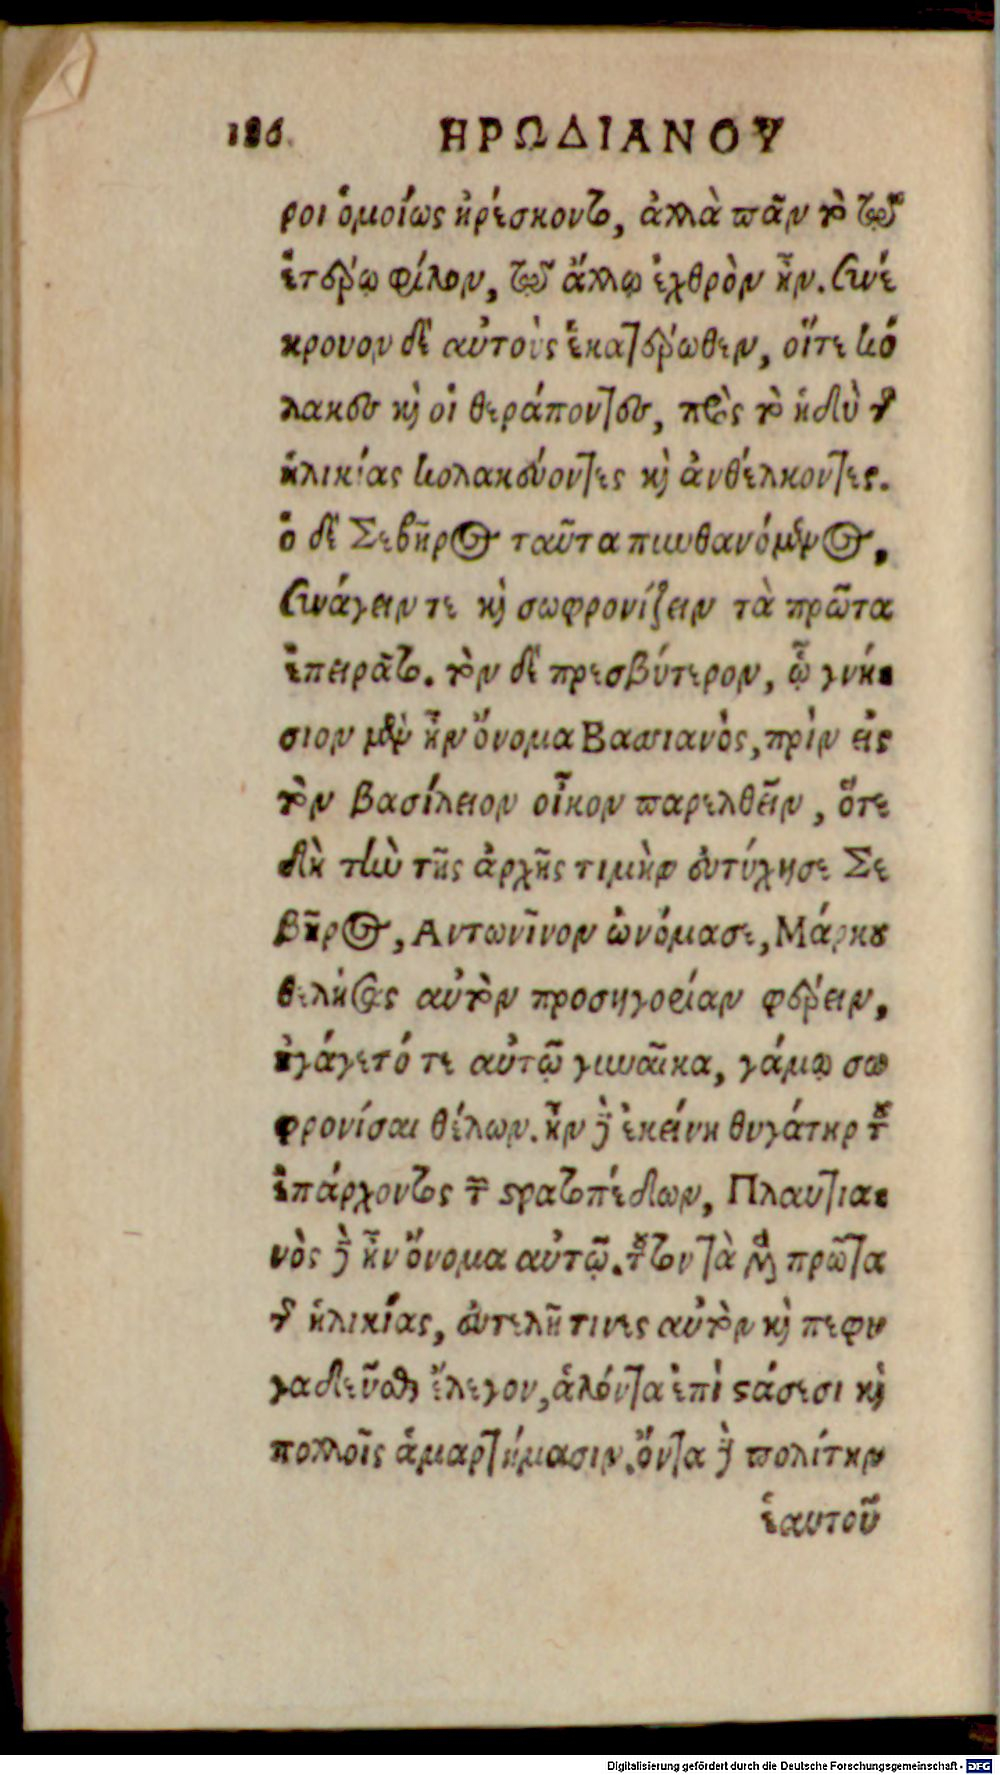 186. ΗΡΩΔΙΑΝΟΥ
ροι ὁμοίως ἠρέσκοντο, ἀλλὰ πᾶν τὸ τῷ
ἑτέρῳ φίλον, τῷ ἄλλῳ ἐχθρὸν ἦν. συνέ
κρουον δὲ αὐτοὺς ἑκατέρωθεν, οἵτε κό
λακες καὶ οἱ θεράποντες, πρὸς τὸ ἡδὺ τῆς
ἡλικίας κολακεύοντες καὶ ἀνθέλκοντες.
ὁ δὲ Σεβῆρος ταῦτα πυνθανόμενος,
συνάγειν τε καὶ σωφρονίζειν τὰ πρῶτα
ἐπειρᾶτο. τὸν δὲ πρεσβύτερον, ᾧ γνή-
σιον μὲν ἦν ὄνομα Βασιανὸς, πρὶν εἰς
τὸν βασίλειον οἶκον παρελθεῖν, ὅτε
δὴ τὴν τῆς ἀρχῆς τιμὴν εὐτύχησε Σε
βῆρος, Αντωνῖνον ὠνόμασε, Μάρκου
θελήσας αὐτὸν προσηγορίαν φέρειν,
ἠγάγετό τε αὐτῷ γυναῖκα, γάμῳ σω
φρονίσαι θέλων. ἦν δὲ ἐκείνη θυγάτηρ τοῦ
ἐπάρχοντος τῶν στρατοπέδων, Πλαυτια-
νὸς δὲ ἦν ὄνομα αὐτῷ. τοῦτον τὰ μὲν πρῶτα
τῆς ἡλικίας, εὐτελῆ τινες αὐτὸν καὶ πεφυ
γαδεῦσθαι ἔλεγον, ἁλόντα ἐπὶ στάσεσι καὶ
πολλοῖς ἁμαρτήμασιν. ὄντα δὲ πολίτην
ἑαυτοῦ
Digitalisierung gefördert durch die Deutsche Forschungsgemeinschaft - DFG